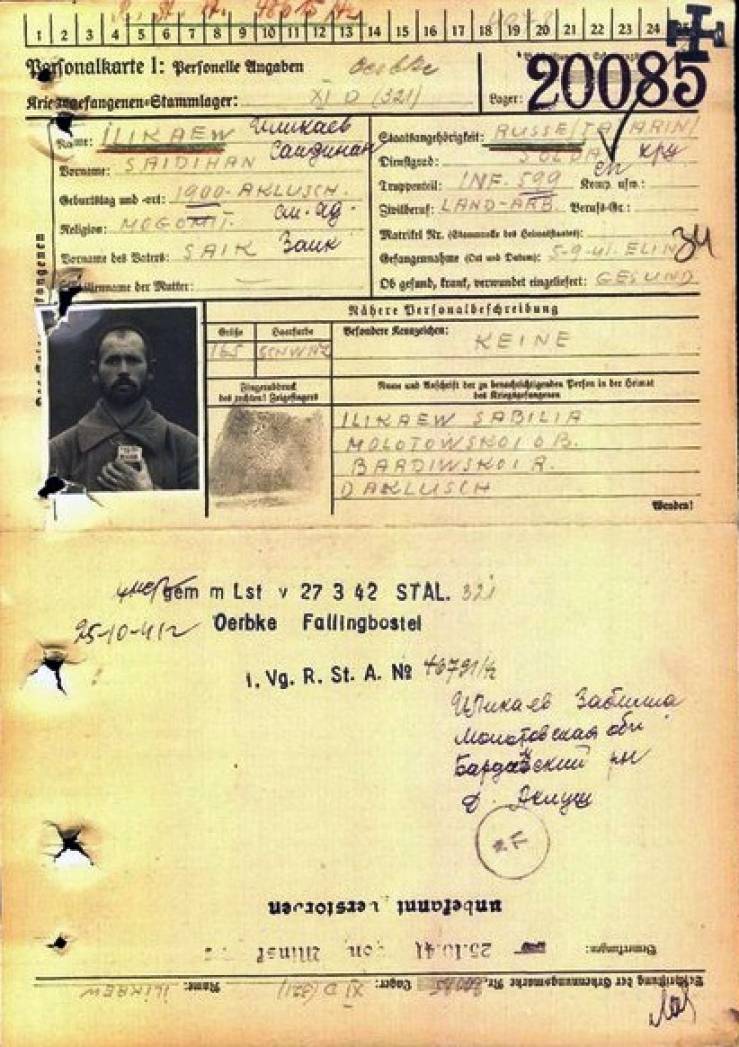 R. St. A. 48615/42
1 2 3 4 5 6 7 8 9 10 11 12 13 14 15 16 17 18 19 20 21 22 23 24 25
Personalkarte I: Personelle Angaben Oerbke
Kriegsgefangenen-Stammlager: XI D (321) Lager: 20085
Name: ILIKAEW Иликаев Staatsangehörigkeit: RUSSE/TATARIN/
Vorname: SAIDIHAN Dienstgrad: SOLDA
Geburtstag und -ort: 1900-AKLUSCH. Truppenteil: INF. 599 Komp. usw.:
Religion: MOGOMIT. Zivilberuf: LAND-ARB. Berufs-Gr.:
Matrikel Nr. (Stammrolle des Heimatstaates):
Vorname des Vaters: SAIK Заик Gefangennahme (Ort und Datum): 5-9-41. ELIN
Familienname der Mutter: — Ob gesund, krank, verwundet eingeliefert: GESUND
Nähere Personalbeschreibung
Größe Haarfarbe Besondere Kennzeichen: KEINE
165 SCHWAZ
Fingerabdruck
des rechten! Zeigefingers
Name und Anschrift der zu benachrichtigenden Person in der Heimat
des Kriegsgefangenen
ILIKAEW SABILIA
MOLOTOWSKOI OB.
BARDIWSKOI R.
D AKLUSCH
Wenden!
gem m Lst v 27 3 42 STAL. 321
25-10-41 Oerbke Fallingbostel
i. Vg. R. St. A. № 46791/42
Иликаев Забилиа
Молотовская обл
Бардавский рн
д. Аклуш
unbekannt verstorben
Bemerkungen: 25.10.41
Beschriftung der Erkennungsmarke Nr. 20085 Lager: XI D (321) Name: ILIKAEW